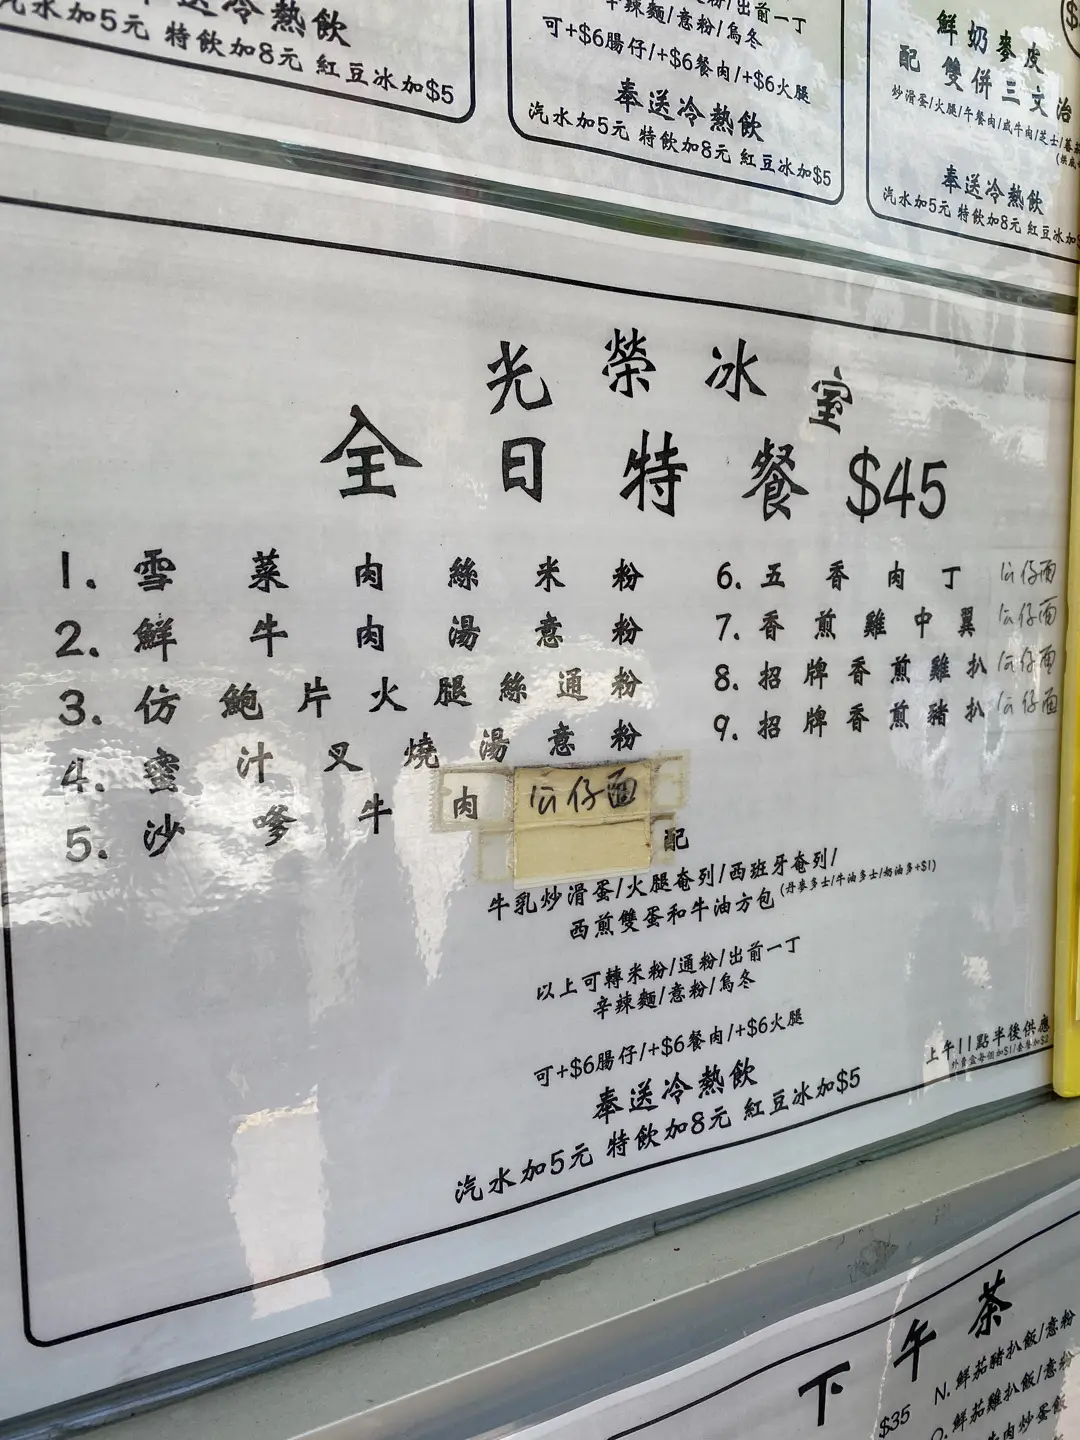 奉送冷熱飲
汽水加5元 特飲加8元 紅豆冰加$5
辛辣麵/意粉/烏冬
可+$6腸仔/+$6餐肉/+$6火腿
奉送冷熱飲
汽水加5元 特飲加8元 紅豆冰加$5
鮮奶麥皮
配 雙併三文治
炒滑蛋/火腿/午餐肉/咸牛肉/芝士/
奉送冷熱飲
汽水加5元 特飲加8元 紅豆冰加
光榮冰室
全日特餐 $45
1. 雪菜肉絲米粉
2. 鮮牛肉湯意粉
3. 仿鮑片火腿絲通粉
4. 蜜汁叉燒湯意粉
5. 沙嗲牛肉公仔面
6. 五香肉丁公仔面
7. 香煎雞中翼公仔面
8. 招牌香煎雞扒公仔面
9. 招牌香煎豬扒公仔面
配
牛乳炒滑蛋/火腿奄列/西班牙奄列/
西煎雙蛋和牛油方包(丹麥多士/牛油多士/奶油多+$1)
以上可轉米粉/通粉/出前一丁
辛辣麵/意粉/烏冬
可+$6腸仔/+$6餐肉/+$6火腿
奉送冷熱飲
汽水加5元 特飲加8元 紅豆冰加$5
上午11點半後供應
外賣盒每個加$1/套餐加$2
下午茶
$35
N. 鮮茄豬扒飯/意粉
鮮茄雞扒飯/意粉
牛肉炒蛋飯